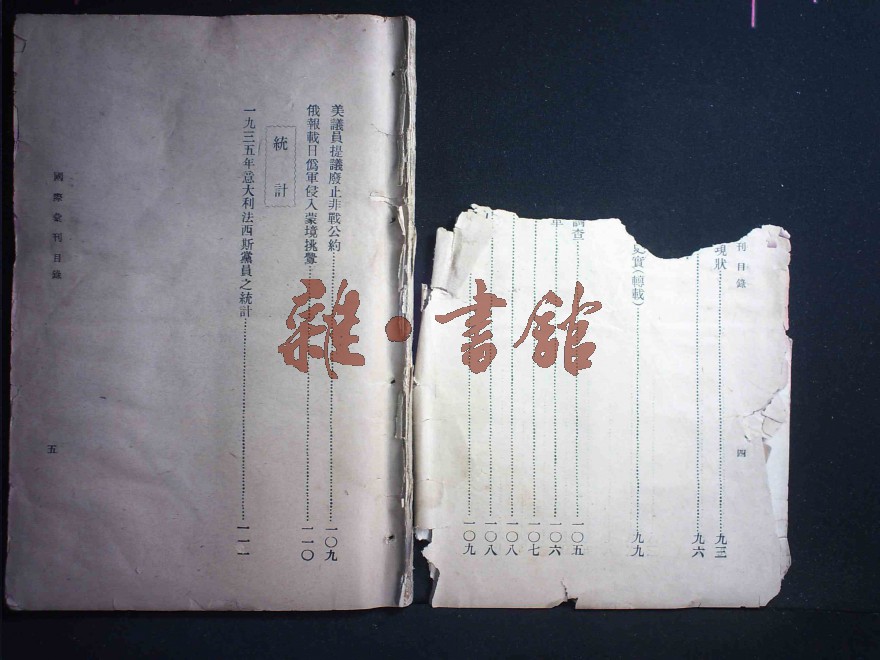 刊目錄
現狀……九三
……九六
史實（轉載）……九九
調查……一〇五
……一〇六
……一〇七
……一〇八
……一〇八
……一〇九
四
美議員提議廢止非戰公約……一〇九
俄報載日僞軍侵入蒙境挑釁……一一〇
統計
一九三五年意大利法西斯黨員之統計……一一一
國際彙刊目錄
五
雜·書館